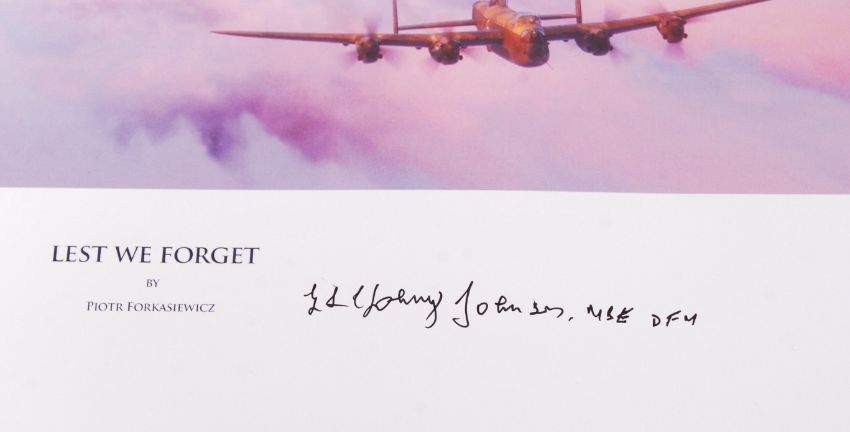 LEST WE FORGET
BY
PIOTR FORKASIEWICZ
G L (Johnny) Johnson, MBE DFM